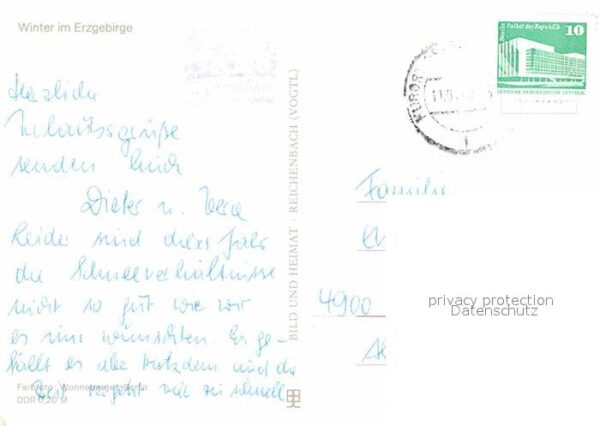 Winter im Erzgebirge
Herzliche
Urlaubsgrüße
senden Euch
Dieter u. Vera
Leider sind dieses Jahr
die Schneeverhältnisse
nicht so gut wie wir
es uns wünschten. Es ge-
fällt es aber trotzdem und die
Zeit vergeht viel zu schnell
Farbfoto: Wonneberger, Berlin
DDR 0,20 M
BILD UND HEIMAT · REICHENBACH (VOGTL)
Berlin Palast der Republik
10
DEUTSCHE DEMOKRATISCHE REPUBLIK
KUROR
Familie
4900
privacy protection
Datenschutz